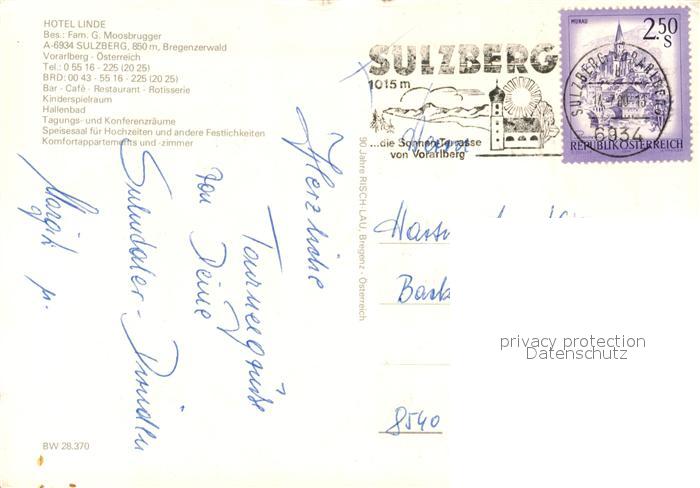 HOTEL LINDE
Bes.: Fam. G. Moosbrugger
A-6934 SULZBERG, 850 m, Bregenzerwald
Vorarlberg - Österreich
Tel.: 0 55 16 - 225 (20 25)
BRD: 00 43 - 55 16 - 225 (20 25)
Bar - Café - Restaurant - Rotisserie
Kinderspielraum
Hallenbad
Tagungs- und Konferenzräume
Speisesaal für Hochzeiten und andere Festlichkeiten
Komfortappartements und -zimmer
SULZBERG
1015 m
...die Sonnen-Terrasse
von Vorarlberg
MURAU
2.50
S
SULZBERG, VORARLBERG
6934
REPUBLIK ÖSTERREICH
Herzliche
Tourneegrüße
von Deine
Margit
90 Jahre RISCH-LAU, Bregenz - Österreich
Herrn
8540
privacy protection
Datenschutz
BW 28.370